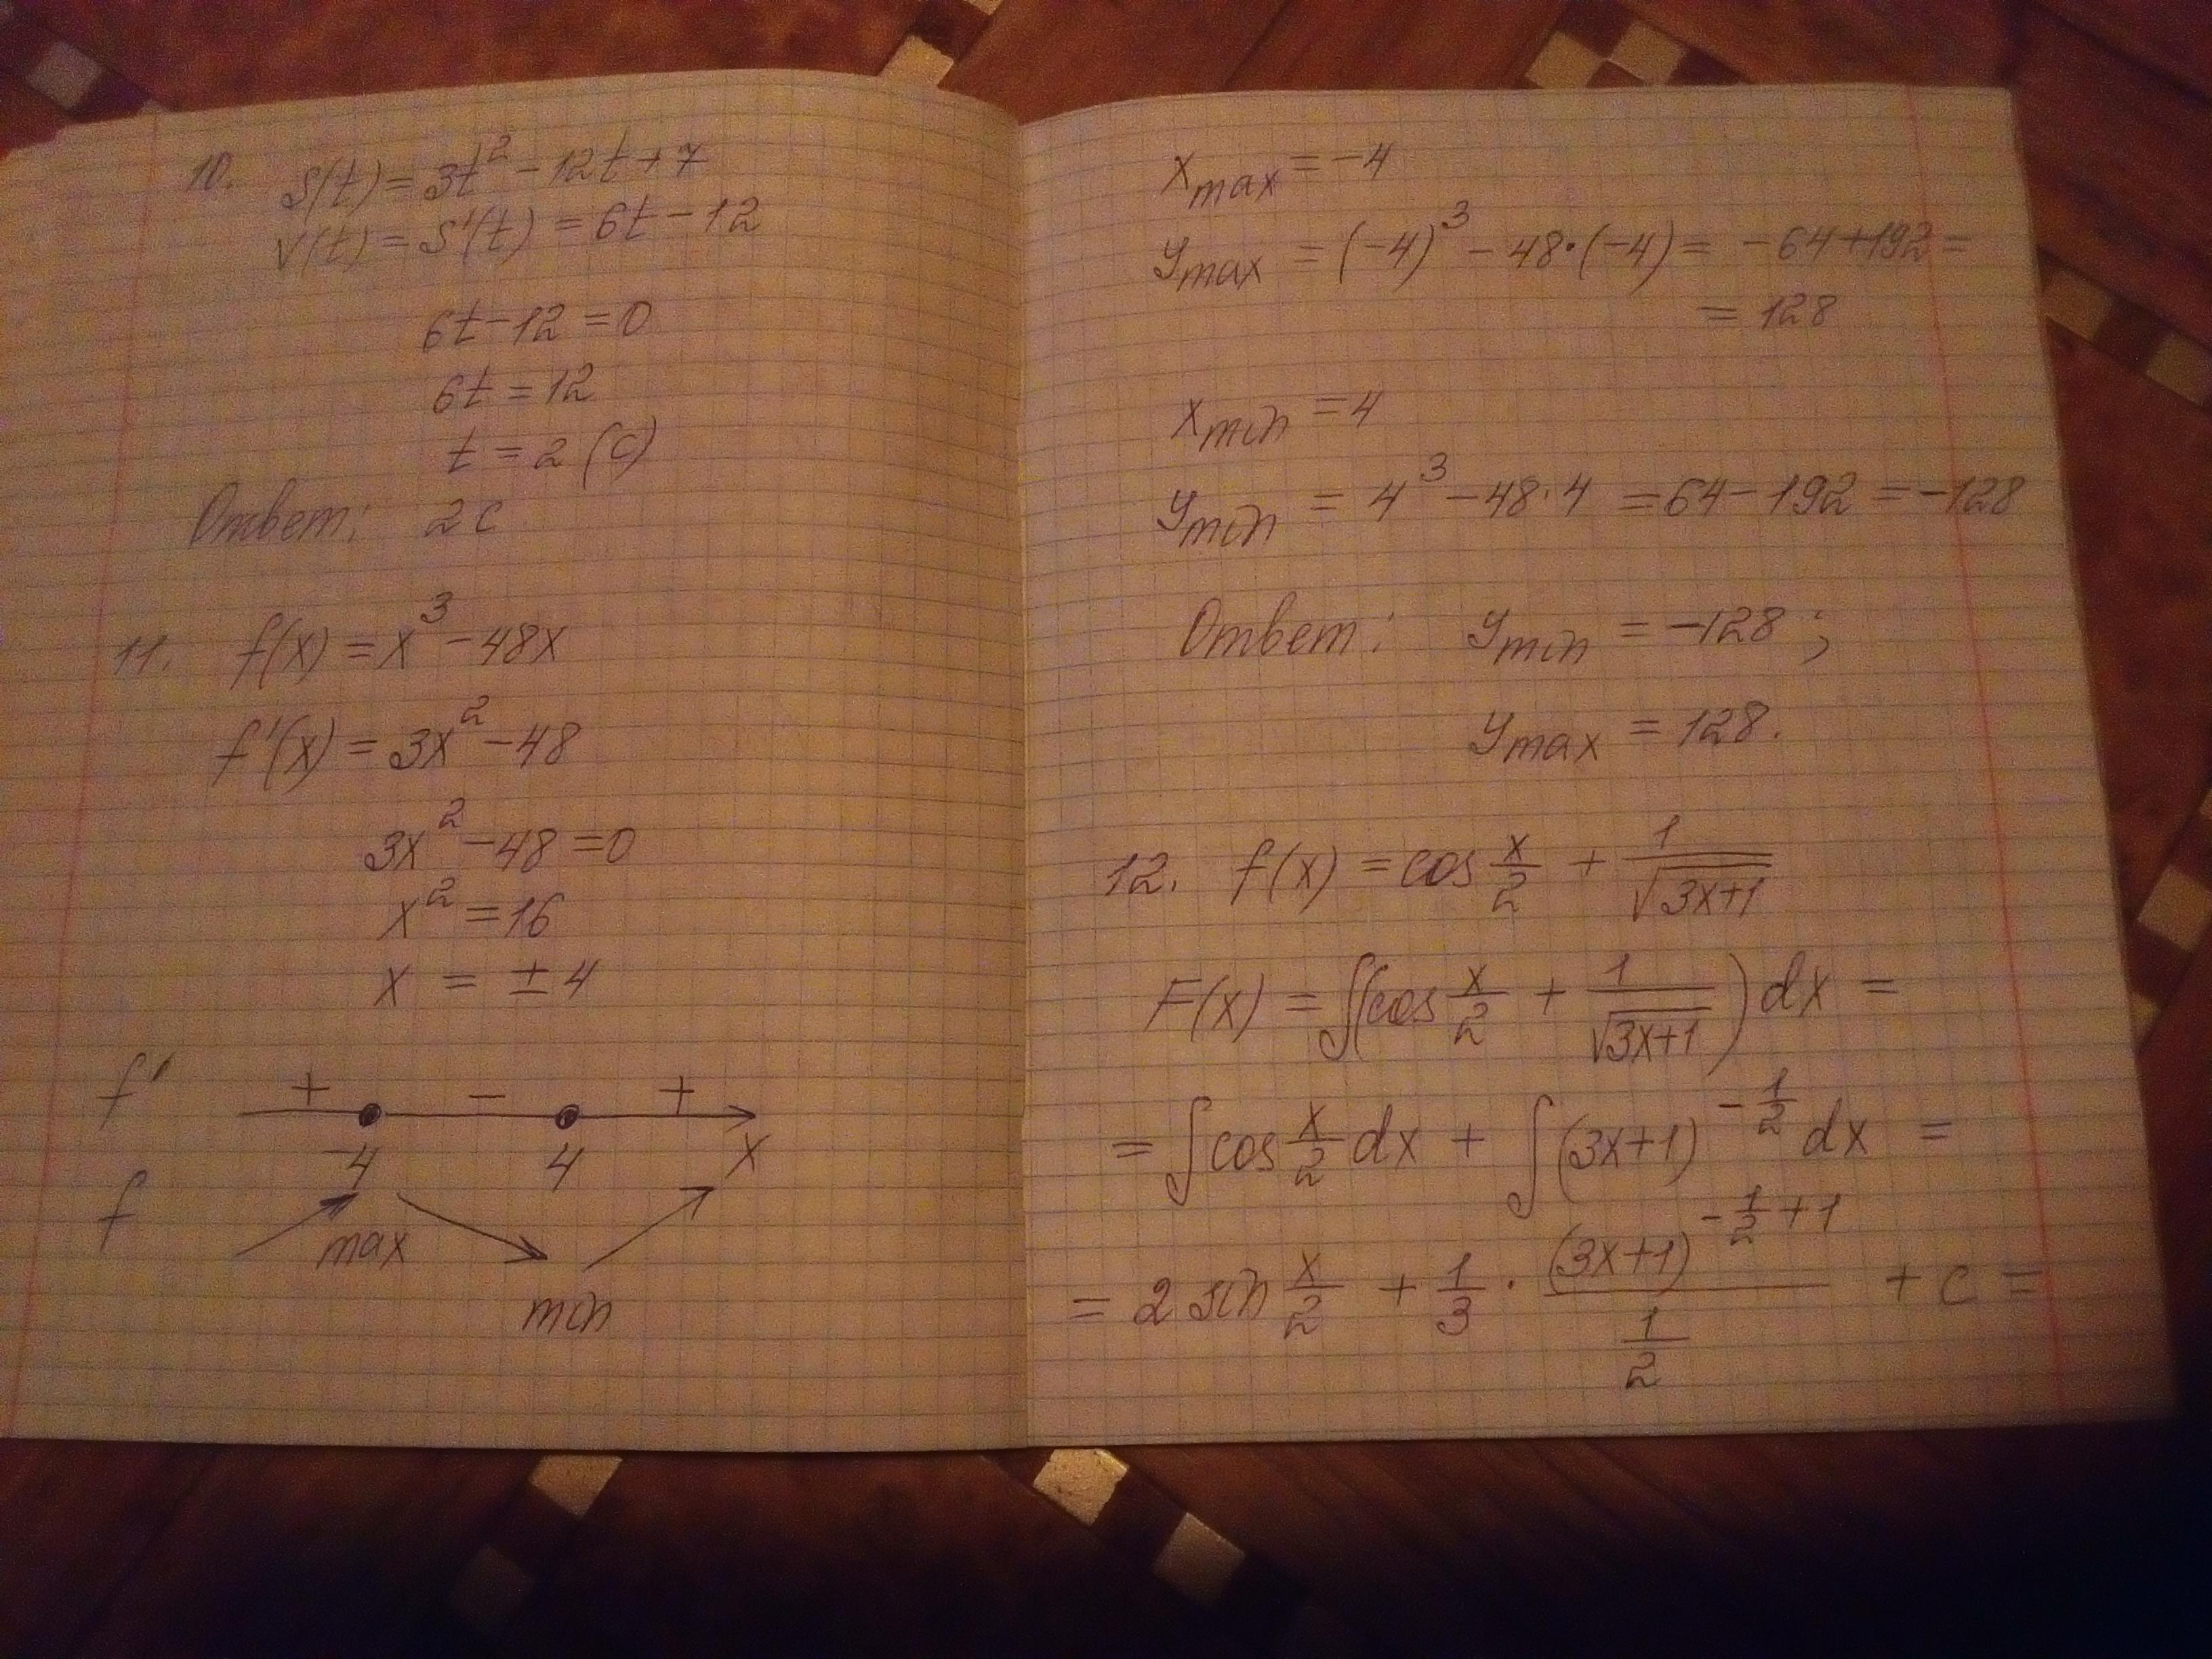 10. S(t) = 3t² - 12t + 7
V(t) = S'(t) = 6t - 12
6t - 12 = 0
6t = 12
t = 2 (с)
Ответ: 2 с
11. f(x) = x³ - 48x
f'(x) = 3x² - 48
3x² - 48 = 0
x² = 16
x = ± 4
f' + - +
-4 4 x
f max
min
x_max = -4
y_max = (-4)³ - 48·(-4) = -64 + 192 =
= 128
x_min = 4
y_min = 4³ - 48·4 = 64 - 192 = -128
Ответ: y_min = -128 ;
y_max = 128.
12. f(x) = cos x/2 + 1/√(3x+1)
F(x) = ∫(cos x/2 + 1/√(3x+1)) dx =
= ∫cos x/2 dx + ∫(3x+1)^(-1/2) dx =
= 2 sin x/2 + 1/3 · (3x+1)^(-1/2+1) / (1/2) + c =